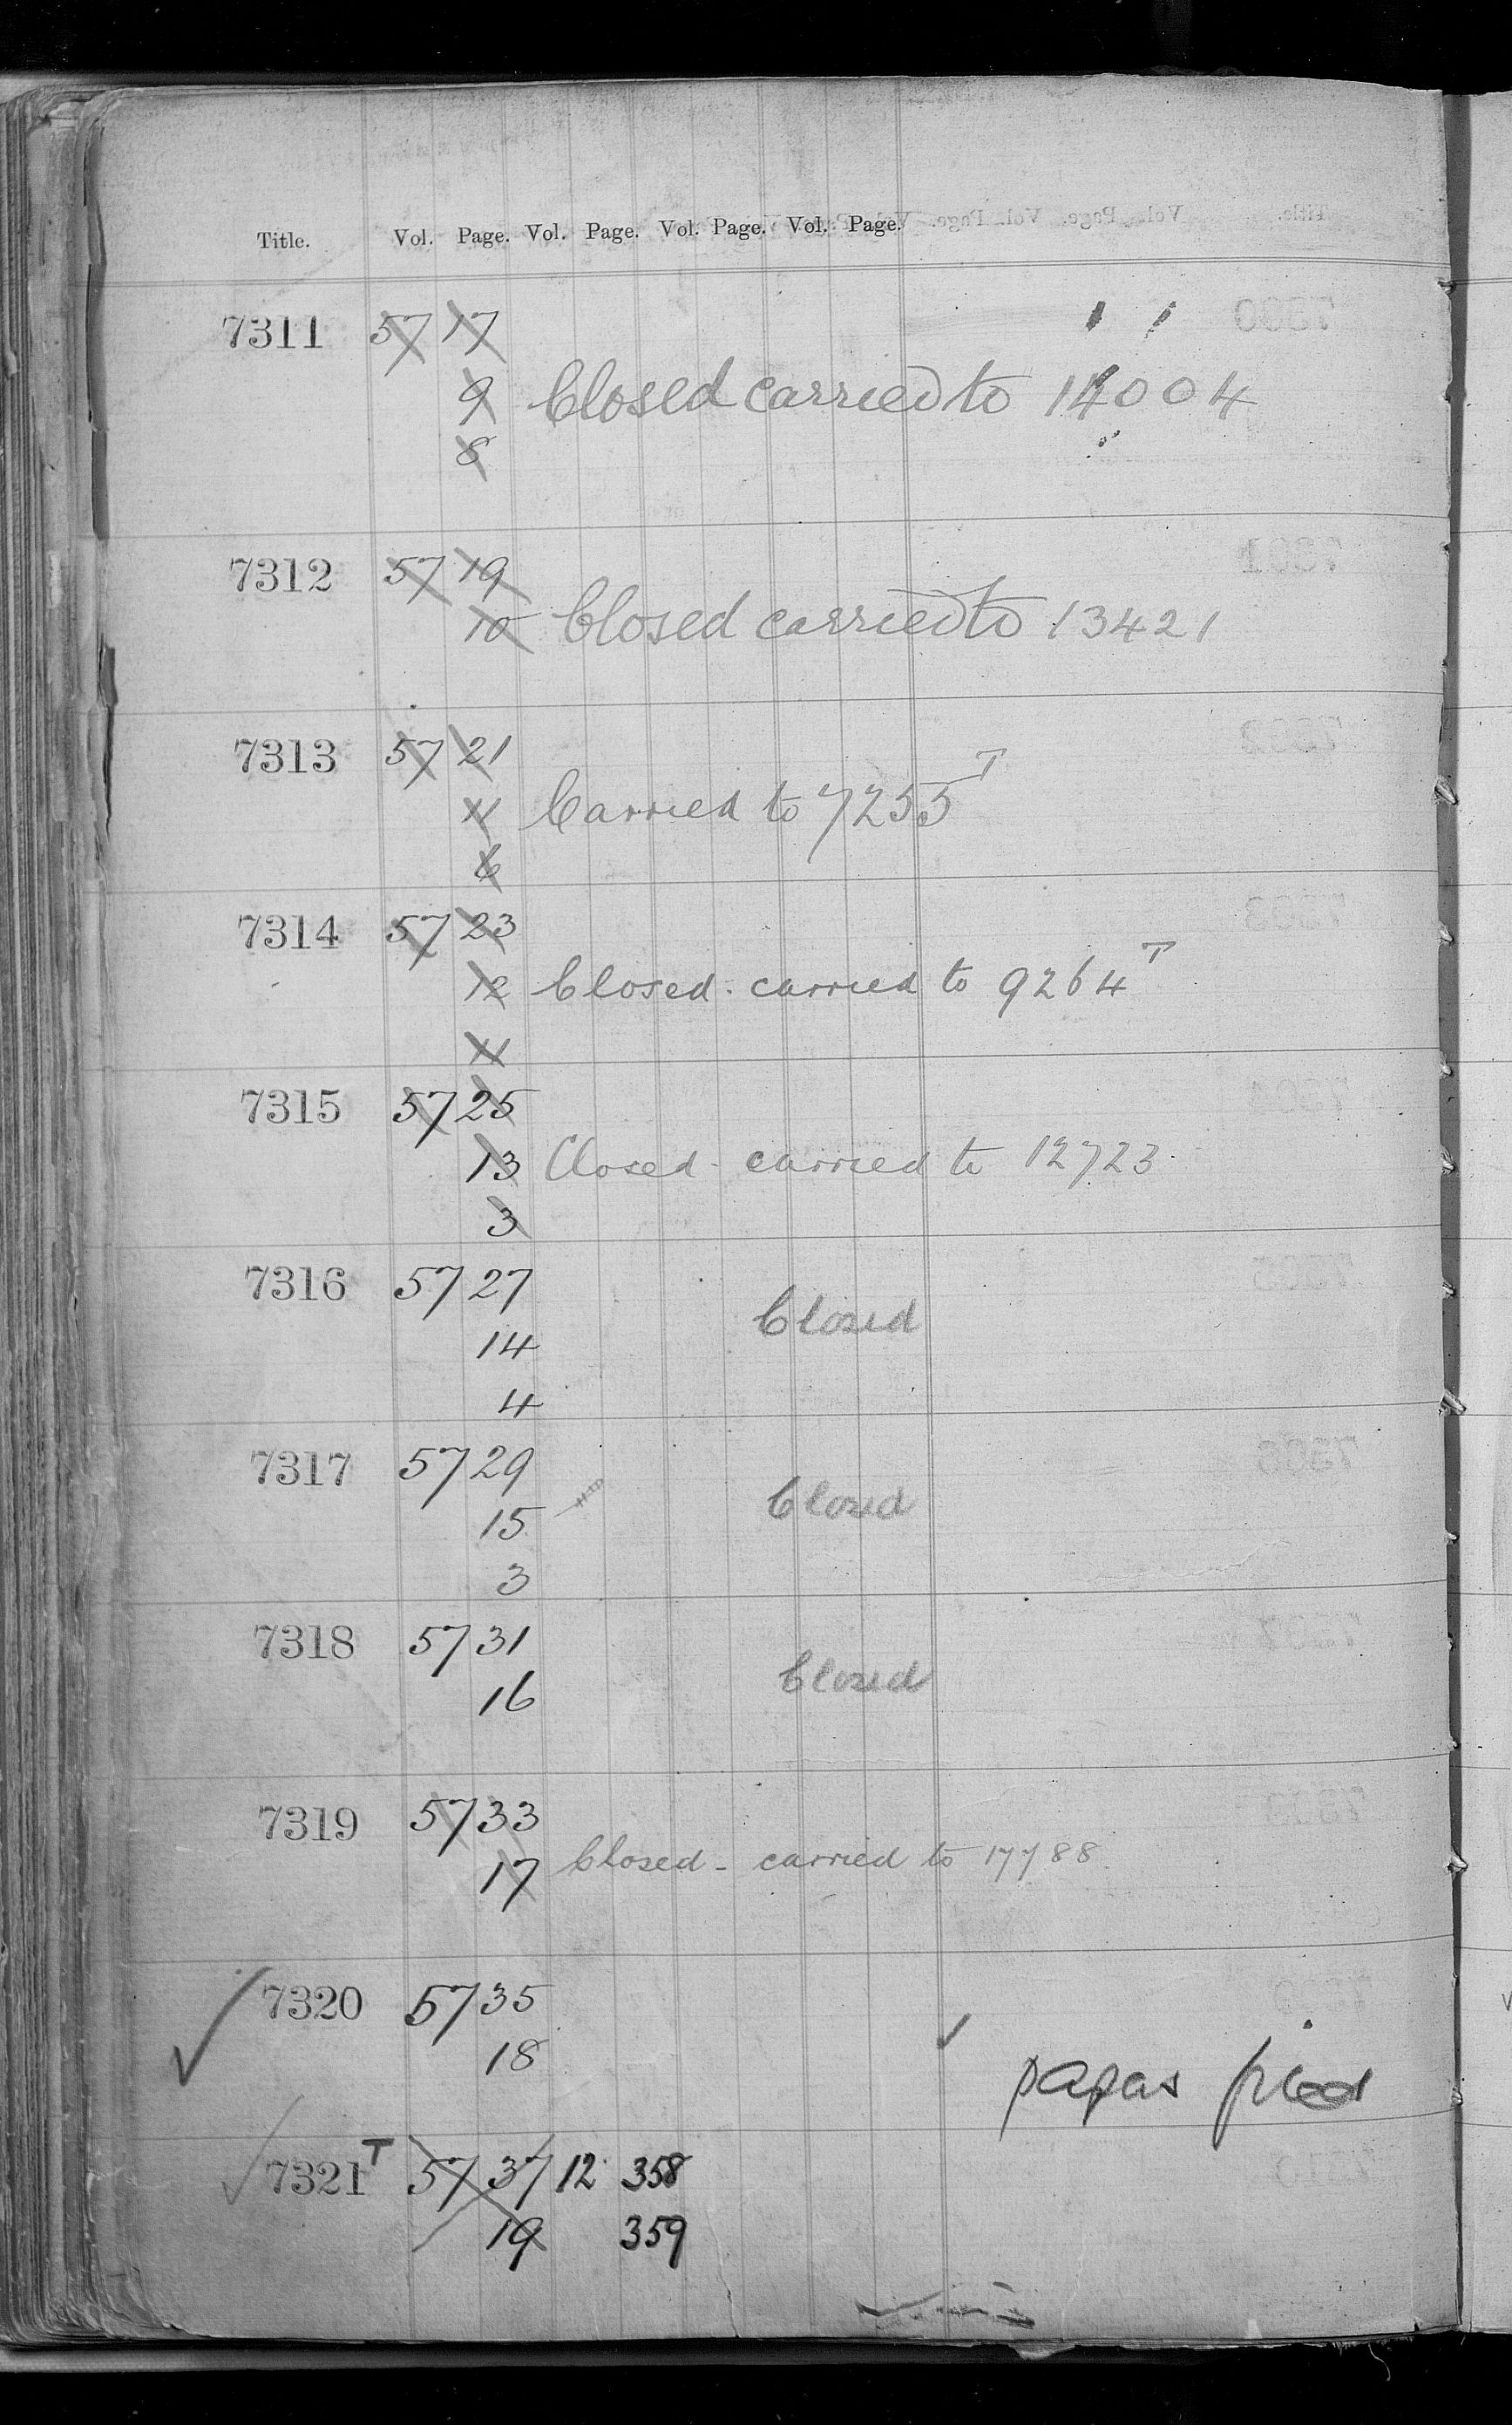 Title. Vol. Page. Vol. Page. Vol. Page. Vol. Page.
7311 57 17
9 Closed carried to 14004
8
7312 57 19
10 Closed carried to 13421
7313 57 21
11 Carried to 7255 T
6
7314 57 23
12 Closed. carried to 9264 T
11
7315 57 25
13 Closed - carried to 12723.
3
7316 57 27
Closed
14
4
7317 57 29
Closed
15
3
7318 57 31
Closed
16
7319 57 33
17 Closed - carried to 17788
7320 57 35
18
7321 T 57 37 12 358
19 359